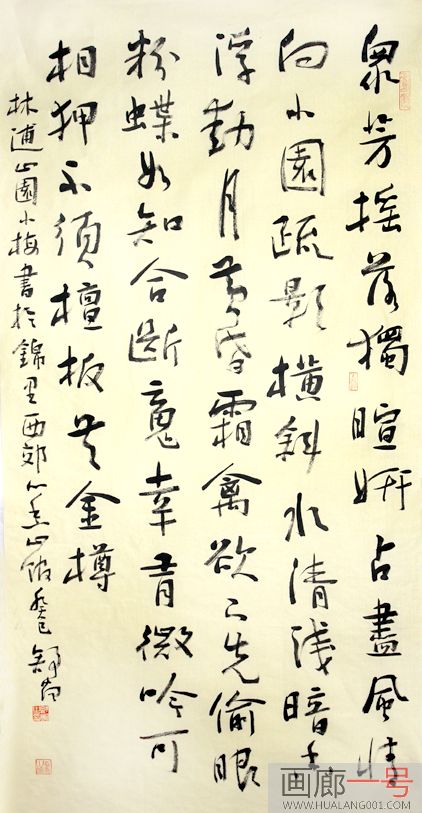 衆芳摇落獨暄妍占盡風情
向小園疏影横斜水清浅暗香
浮動月黄昏霜禽欲下先偷眼
粉蝶如知合断魂幸有微吟可
相狎不須檀板共金樽
林逋山園小梅書於錦里西郊山館癸巳
画廊一号
WWW.HUALANG001.COM